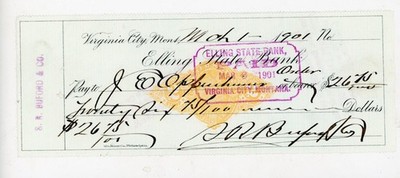 Virginia City, Mont. Mch 1 1901 No
Elling State Bank
ELLING STATE BANK,
PAID
MAR 2 1901
VIRGINIA CITY, MONTANA.
Pay to J E Opp or Order
$26 75/100
Twenty Six 75/100 Dollars
$26 75/100
S R Buford & Co
S. R. BUFORD & CO.